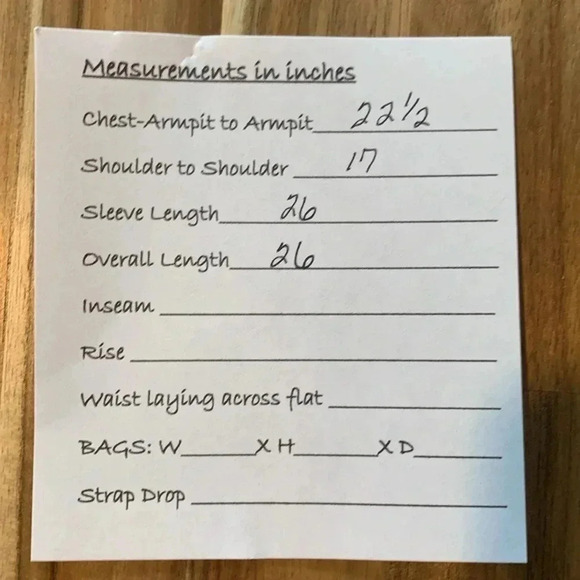 Measurements in inches
Chest-Armpit to Armpit 22 1/2
Shoulder to Shoulder 17
Sleeve Length 26
Overall Length 26
Inseam
Rise
Waist laying across flat
BAGS: W______X H______X D______
Strap Drop